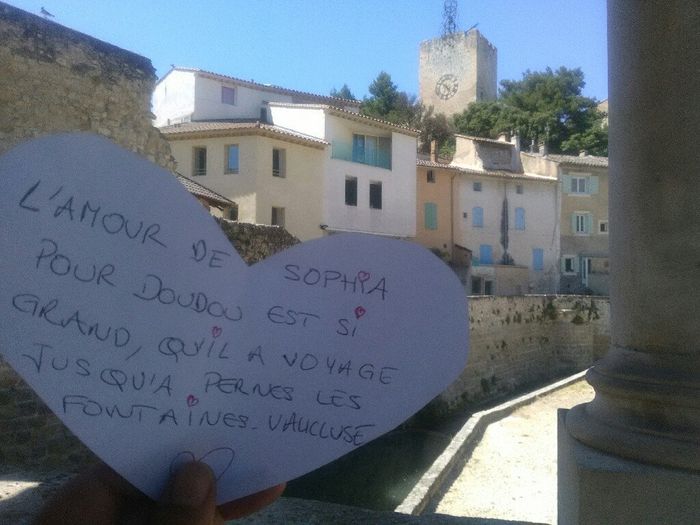 L'AMOUR DE SOPHIA
POUR DOUDOU EST SI
GRAND, QU'IL A VOYAGE
JUSQU'A PERNES LES
FONTAINES. VAUCLUSE